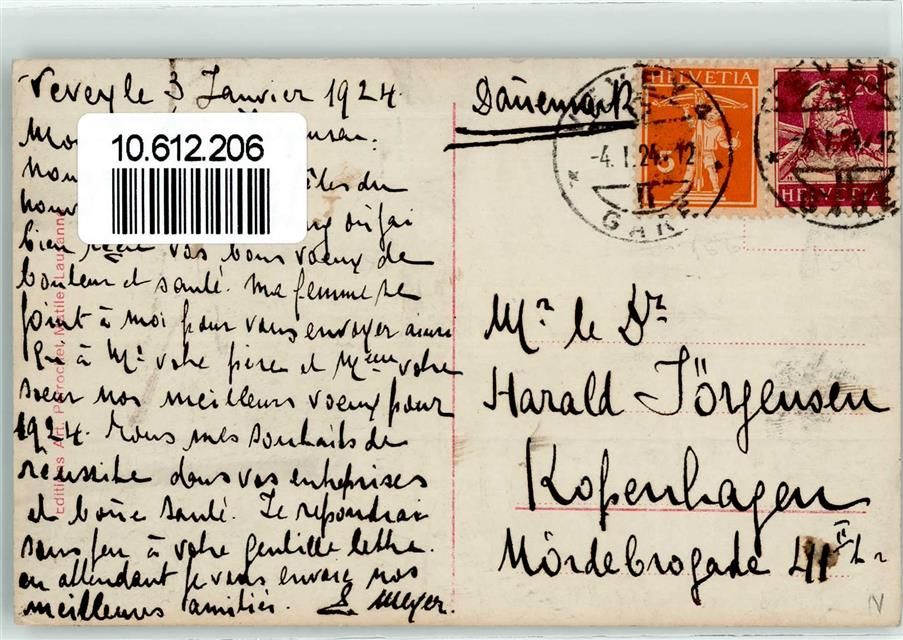 Vevey le 3 Janvier 1924.
10.612.206
bien vos bons voeux de
bonheur et santé. Ma femme se
joint à moi pour vous envoyer ainsi
qu'à Mr votre père et Mme votre
soeur nos meilleurs voeux pour
1924. Tous mes souhaits de
réussite dans vos entreprises
et bonne santé. Je répondrai
sous peu à votre gentille lettre.
en attendant je vous envoie nos
meilleures amitiés. E. Meyer.
Editions Art. Perrochet, Matile, Lausanne
Dänemark
HELVETIA
5
20
HELVETIA
-4.I.24-12
GARE
-4.I.24-12
GARE
Mr. le Dr.
Harald Jörgensen
Kopenhagen
Mördebrogade 41 II